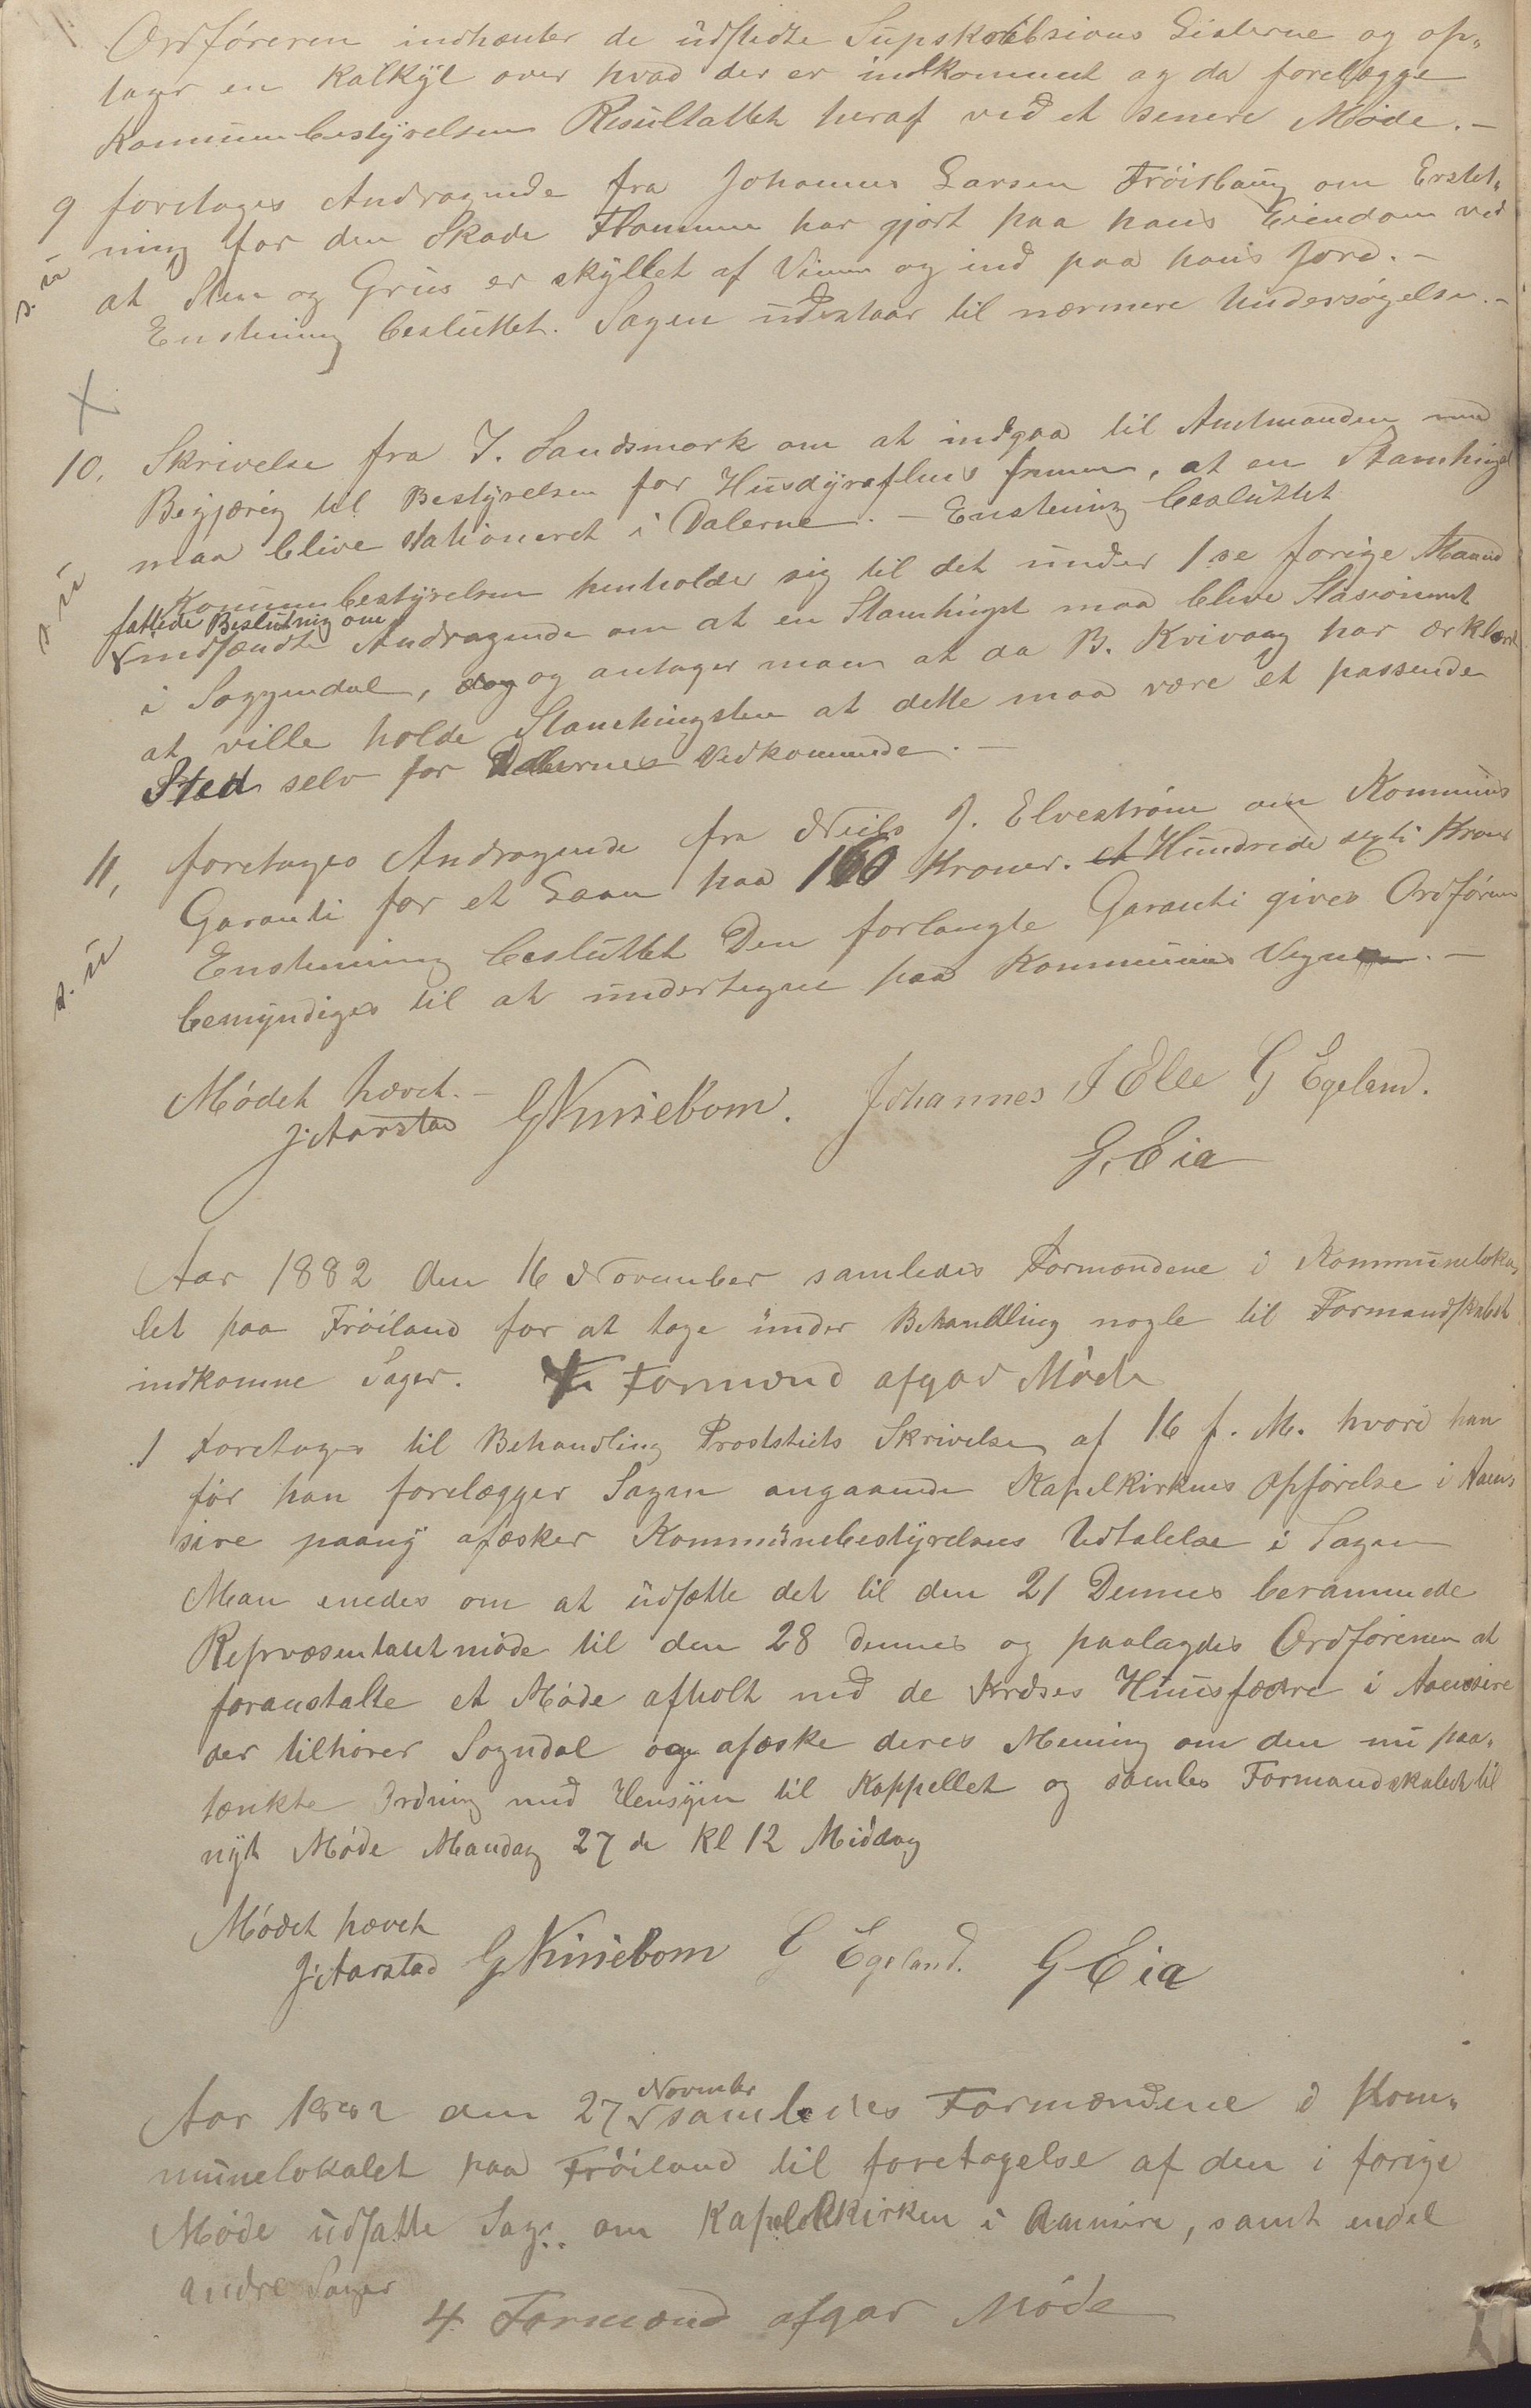 Ordføreren indhænter de udstedte Supskribsions Listerne og op„
tager en Kalkyl over hvad der er indkommet og da forelægge
Kommunebestyrelsen Resultattet heraf ved et senere Møde. —
9 foretages Andragende fra Johannes Larsen Frøistaug om Erstat„
ning for den Skade Flommen har gjort paa hans Eiendom ved
at Sten og Grus er skyllet af Veien og ind paa hans Jord. —
Enstemig besluttet. Sagen udestaar til nærmere Undersøgelse. —
10, Skrivelse fra J. Sandsmark om at indgaa til Amtmanden med
Begjæring til Bestyrelsen for Husdyravlens fremme, at en Stamhingst
maa blive stationeret i Dalerne. — Enstemig besluttet
Kommunebestyrelsen henholder sig til det under 1ste forige Maaned
fattede Beslutning om
indsændte Andragende om at en Stamhingst maa blive Stasioneret
i Soggendal, og antager man at da B. Kvivaag har erklæret
at ville holde Stamhingsten at dette maa være et passende
Sted selv for Dalernes Vedkommende. —
11, foretages Andragende fra Neils J. Elvestrøm om Kommuns
Garanti for et Laan paa 160 Kroner. et Hundrede sexti Kroner
Enstemmig besluttet Den forlangte Garanti gives Ordføreren
bemyndiges til at undertegne paa Kommunens Vegne. —
Mødet hævet. —
J. Aarstad GNuriebom. Johannes J Elle G Egeland.
G. Eia
Aar 1882 den 16 November samledes Formændene i Kommuneloka„
let paa Frøiland for at tage under Behandling nogle til Formandskabet
indkomne Sager. Formænd afgav Møde
1 Foretages til Behandling Provstiets Skrivelse af 16 f. M. hvori han
før han forelægger Sagen angaaende Kapelkirkens Opførelse i Aanæ
sire paany afæsker Kommunebestyrelsens Udtalelse i Sagen
Man enedes om at udsætte det til den 21 Dennes berammede
Repræsentantmøde til den 28 dennes og paalagdes Ordføreren at
foranstalte et Møde afholt med de Kredses Huusfædre i Aanæsire
der tilhører Sogndal og afæske deres Mening om den nu paa„
tænkte Ordning med Hensyn til Kappellet og samles Formandskabet til
nyt Møde Mandag 27 de Kl 12 Middag
Mødet hævet
J. Aarstad GNuriebom G Egeland. G Eia
November
Aar 1882 den 27 samledes Formændene i Kom„
munelokalet paa Frøiland til foretagelse af den i forige
Møde udsatte Sag om Kapelkirken i Aanæsire, samt endel
andre Sager
4 Formænd afgav Møde